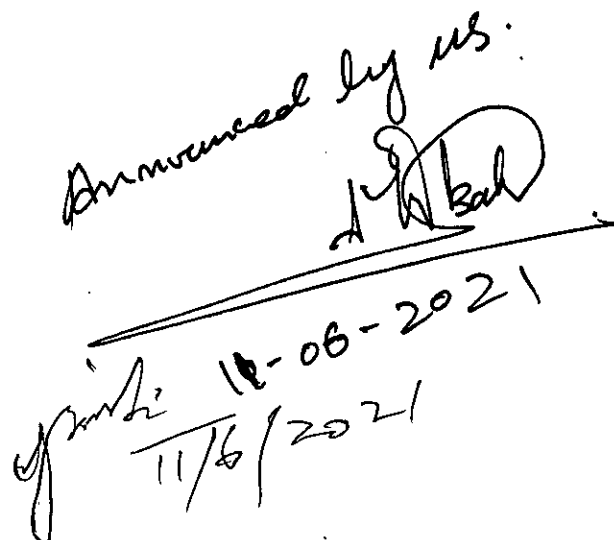 Announced by us.
11-06-2021
11/6/2021